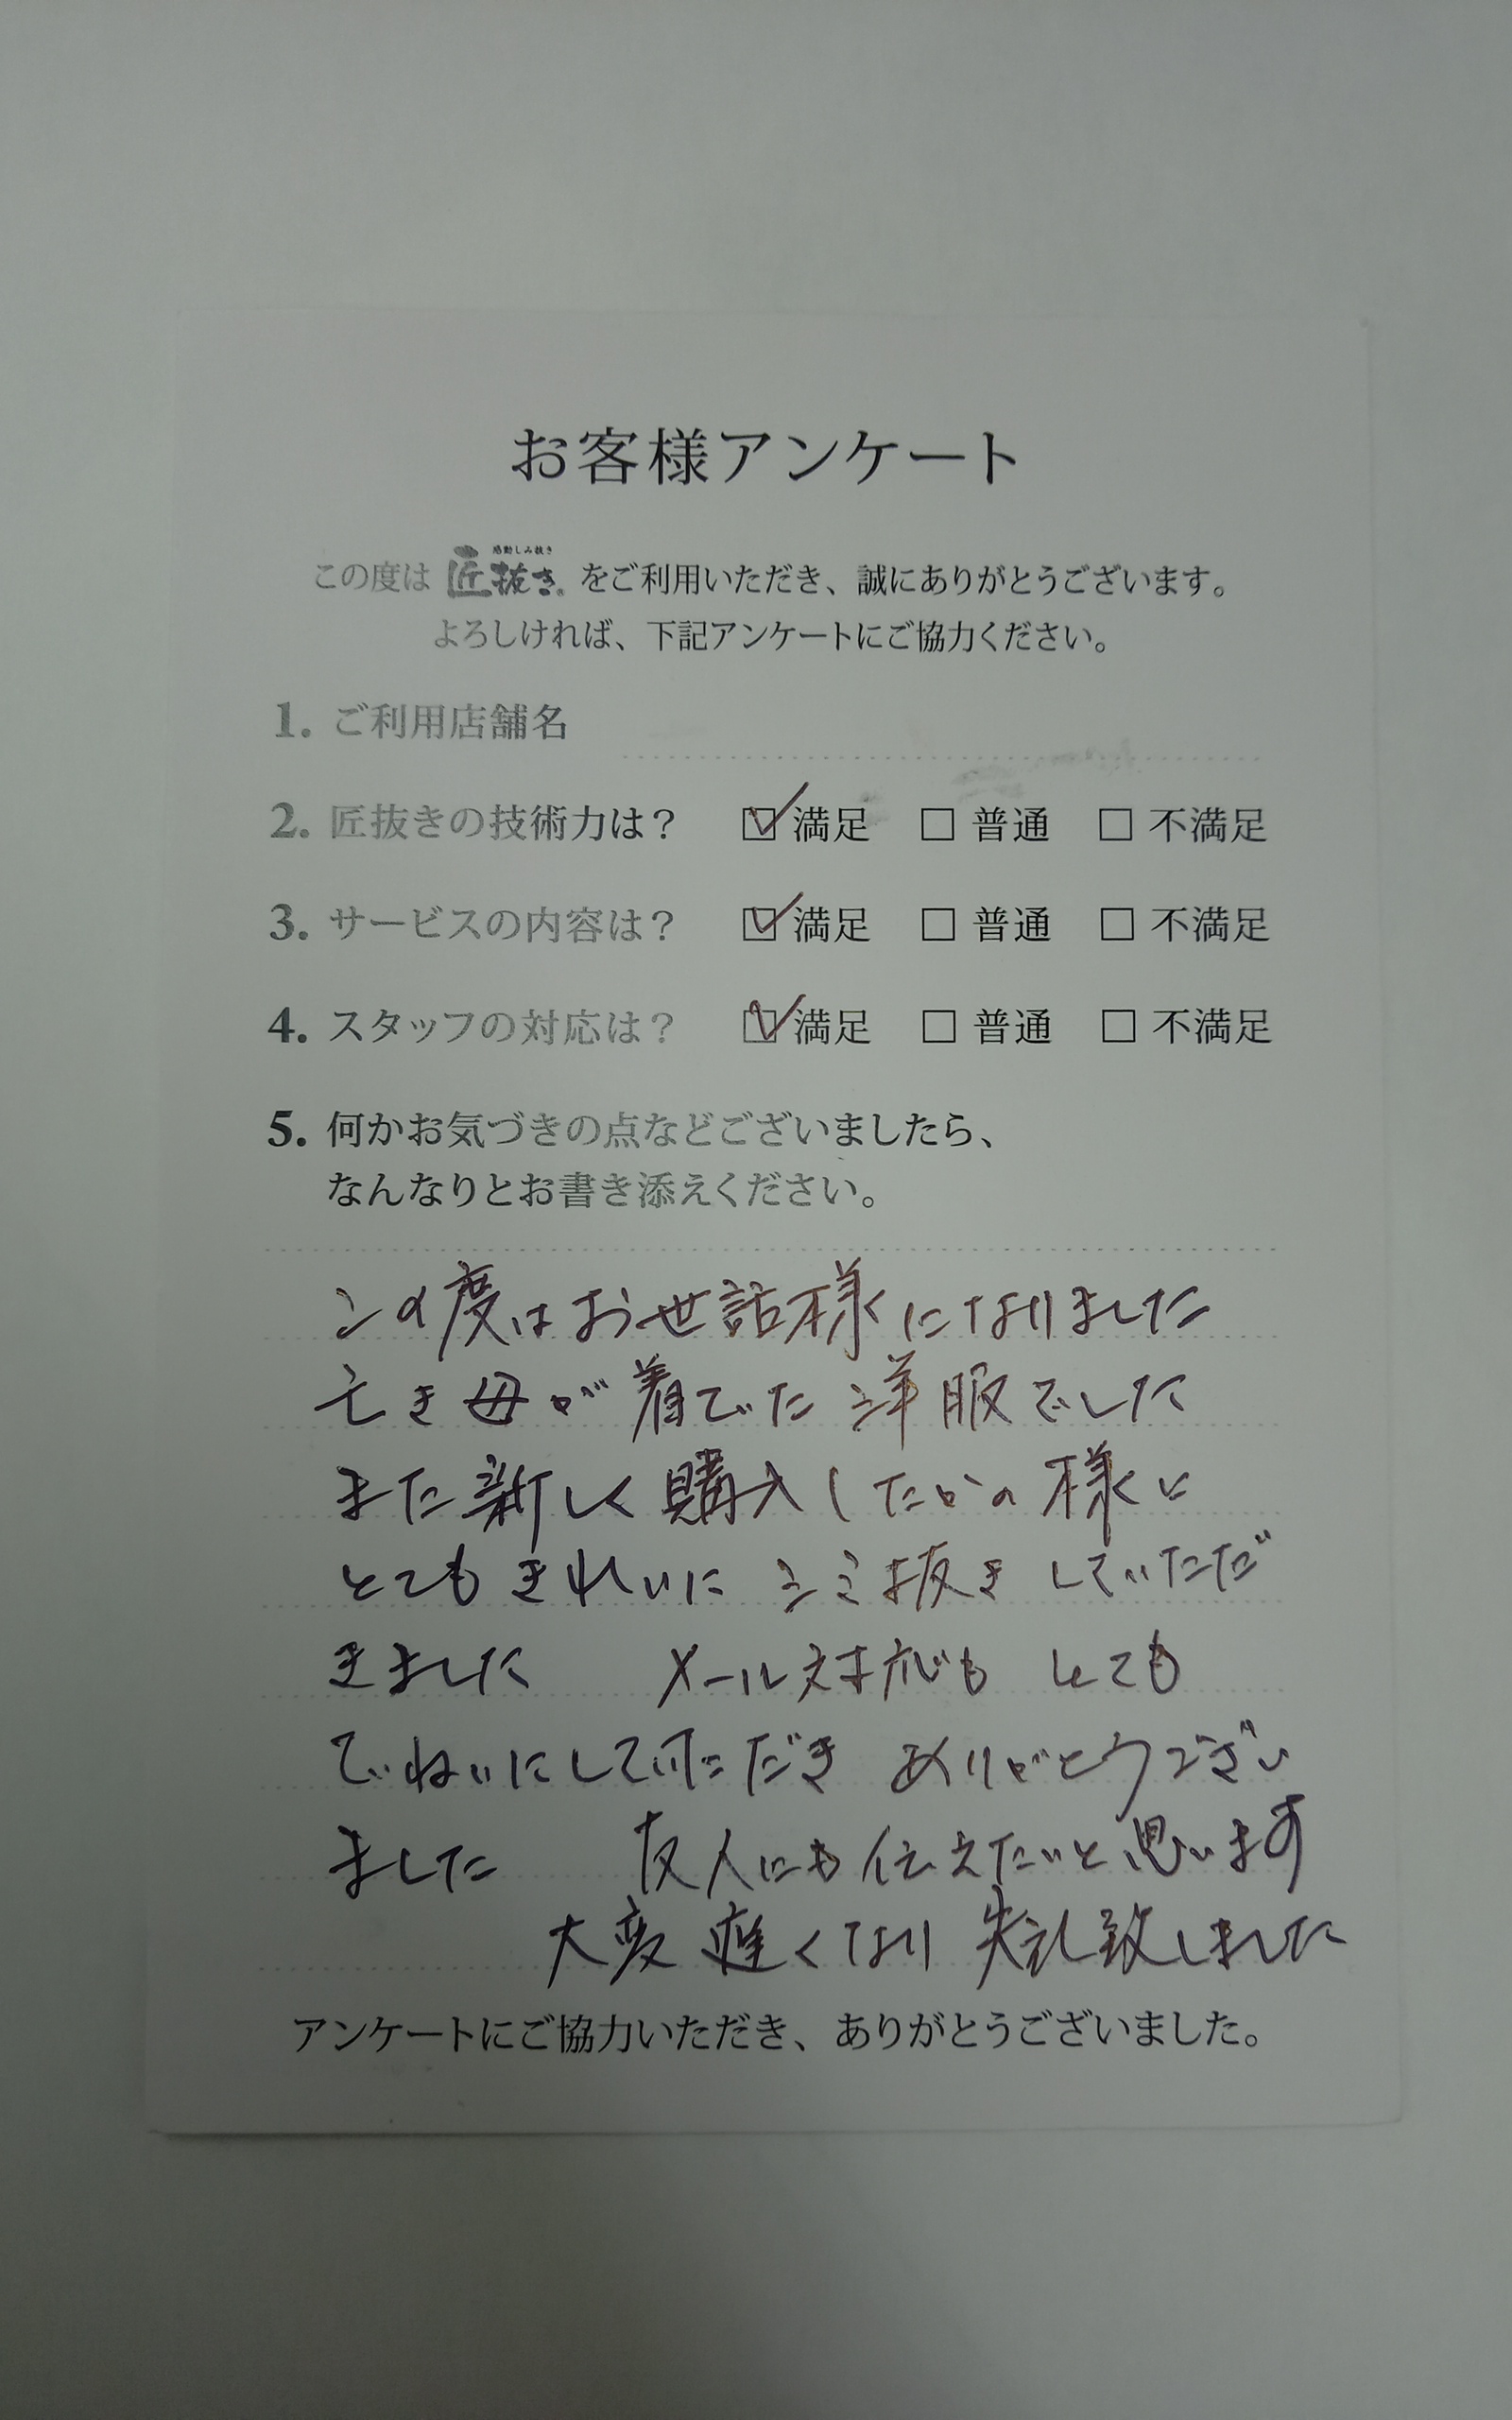 お客様アンケート
感動しみ抜き
この度は 匠抜き をご利用いただき、誠にありがとうございます。
よろしければ、下記アンケートにご協力ください。
1. ご利用店舗名
2. 匠抜きの技術力は? ☑ 満足 □ 普通 □ 不満足
3. サービスの内容は? ☑ 満足 □ 普通 □ 不満足
4. スタッフの対応は? ☑ 満足 □ 普通 □ 不満足
5. 何かお気づきの点などございましたら、
なんなりとお書き添えください。
この度はお世話様になりました
亡き母が着ていた洋服でした
また新しく購入したかの様に
とてもきれいにシミ抜きしていただ
きました メール対応も とても
ていねいにしていただき ありがとうござい
ました 友人にも伝えたいと思います
大変遅くなり 失礼致しました
アンケートにご協力いただき、ありがとうございました。